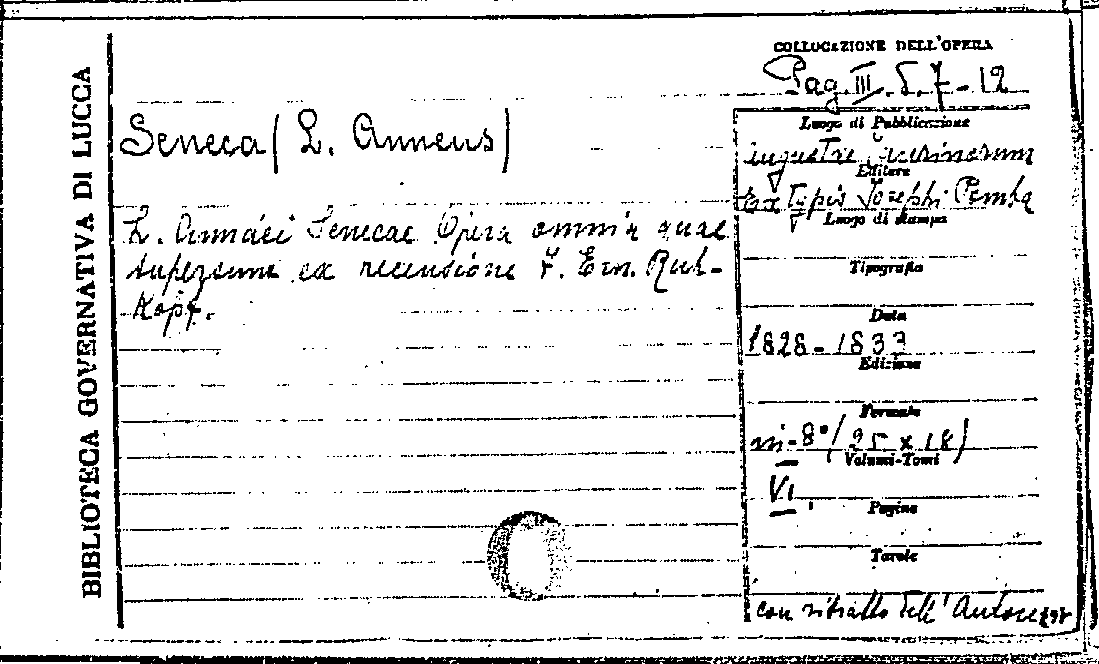 BIBLIOTECA GOVERNATIVA DI LUCCA
COLLOCAZIONE DELL'OPERA
Pag. III. S. 7 - 12
Seneca (L. Anneus)
L. Annaei Senecae Opera omnia quae
supersunt ex recensione F. Ern. Ruh-
kopf.
Luogo di Pubblicazione
Augustae Taurinorum
Editore
Ex typis Josephi Pomba
Luogo di stampa
Tipografia
Data
1828 - 1833
Edizione
Formato
in-8° (25 x 18)
Volumi-Tomi
VI.
Pagine
Tavole
con ritratto dell'Autore